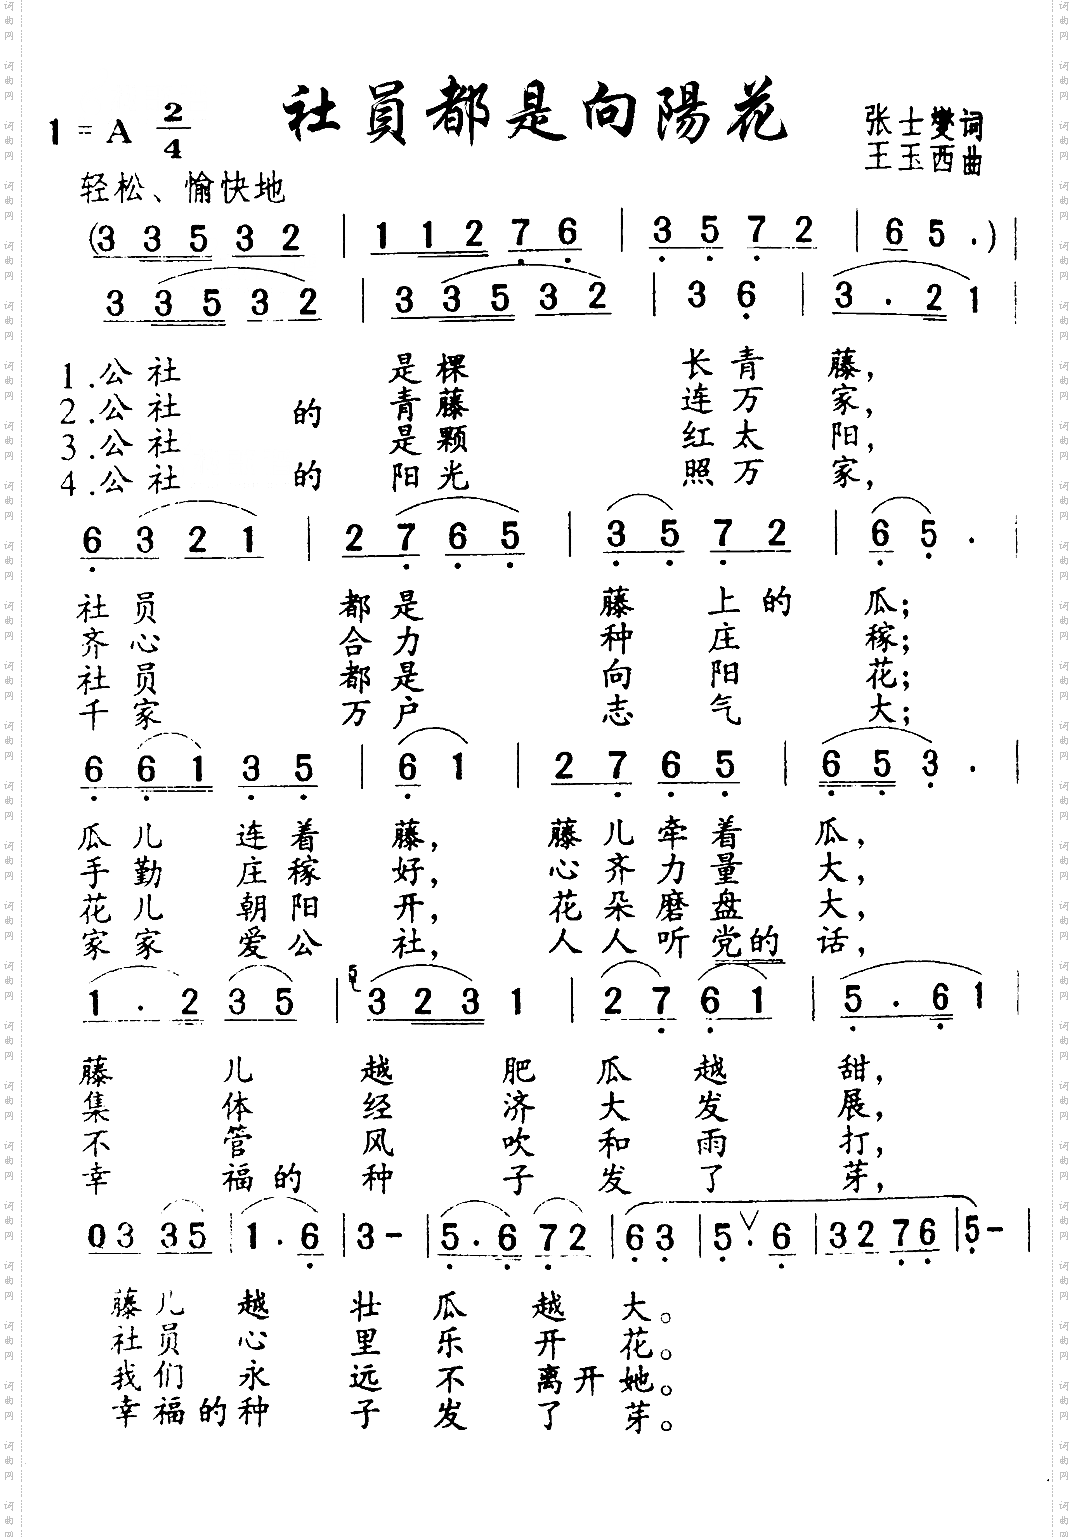 社員都是向陽花
1=A 2/4
张士燮词
王玉西曲
轻松、愉快地
(3 3 5 3 2 | 1 1 2 7 6 | 3 5 7 2 | 6 5 · ) |
3 3 5 3 2 | 3 3 5 3 2 | 3 6 | 3 · 2 1 |
1.公社 是棵 长青 藤，
2.公社 的 青藤 连万 家，
3.公社 是颗 红太 阳，
4.公社 的 阳光 照万 家，
6 3 2 1 | 2 7 6 5 | 3 5 7 2 | 6 5 · |
社员 都是 藤 上的 瓜；
齐心 合力 种 庄 稼；
社员 都是 向 阳 花；
千家 万户 志 气 大；
6 6 1 3 5 | 6 1 | 2 7 6 5 | 6 5 3 · |
瓜儿 连着 藤， 藤儿牵着 瓜，
手勤 庄稼 好， 心齐力量 大，
花儿 朝阳 开， 花朵磨盘 大，
家家 爱公 社， 人人听党的 话，
1 · 2 3 5 | 5 3 2 3 1 | 2 7 6 1 | 5 · 6 1 |
藤 儿 越 肥 瓜 越 甜，
集 体 经 济 大 发 展，
不 管 风 吹 和 雨 打，
幸 福的 种 子 发 了 芽，
0 3 3 5 | 1 · 6 | 3 - | 5 · 6 7 2 | 6 3 | 5 · ∨ 6 | 3 2 7 6 | 5 - |
藤儿 越 壮 瓜 越 大。
社员 心 里 乐 开 花。
我们 永 远 不 离开她。
幸福的种 子 发 了 芽。
词曲网